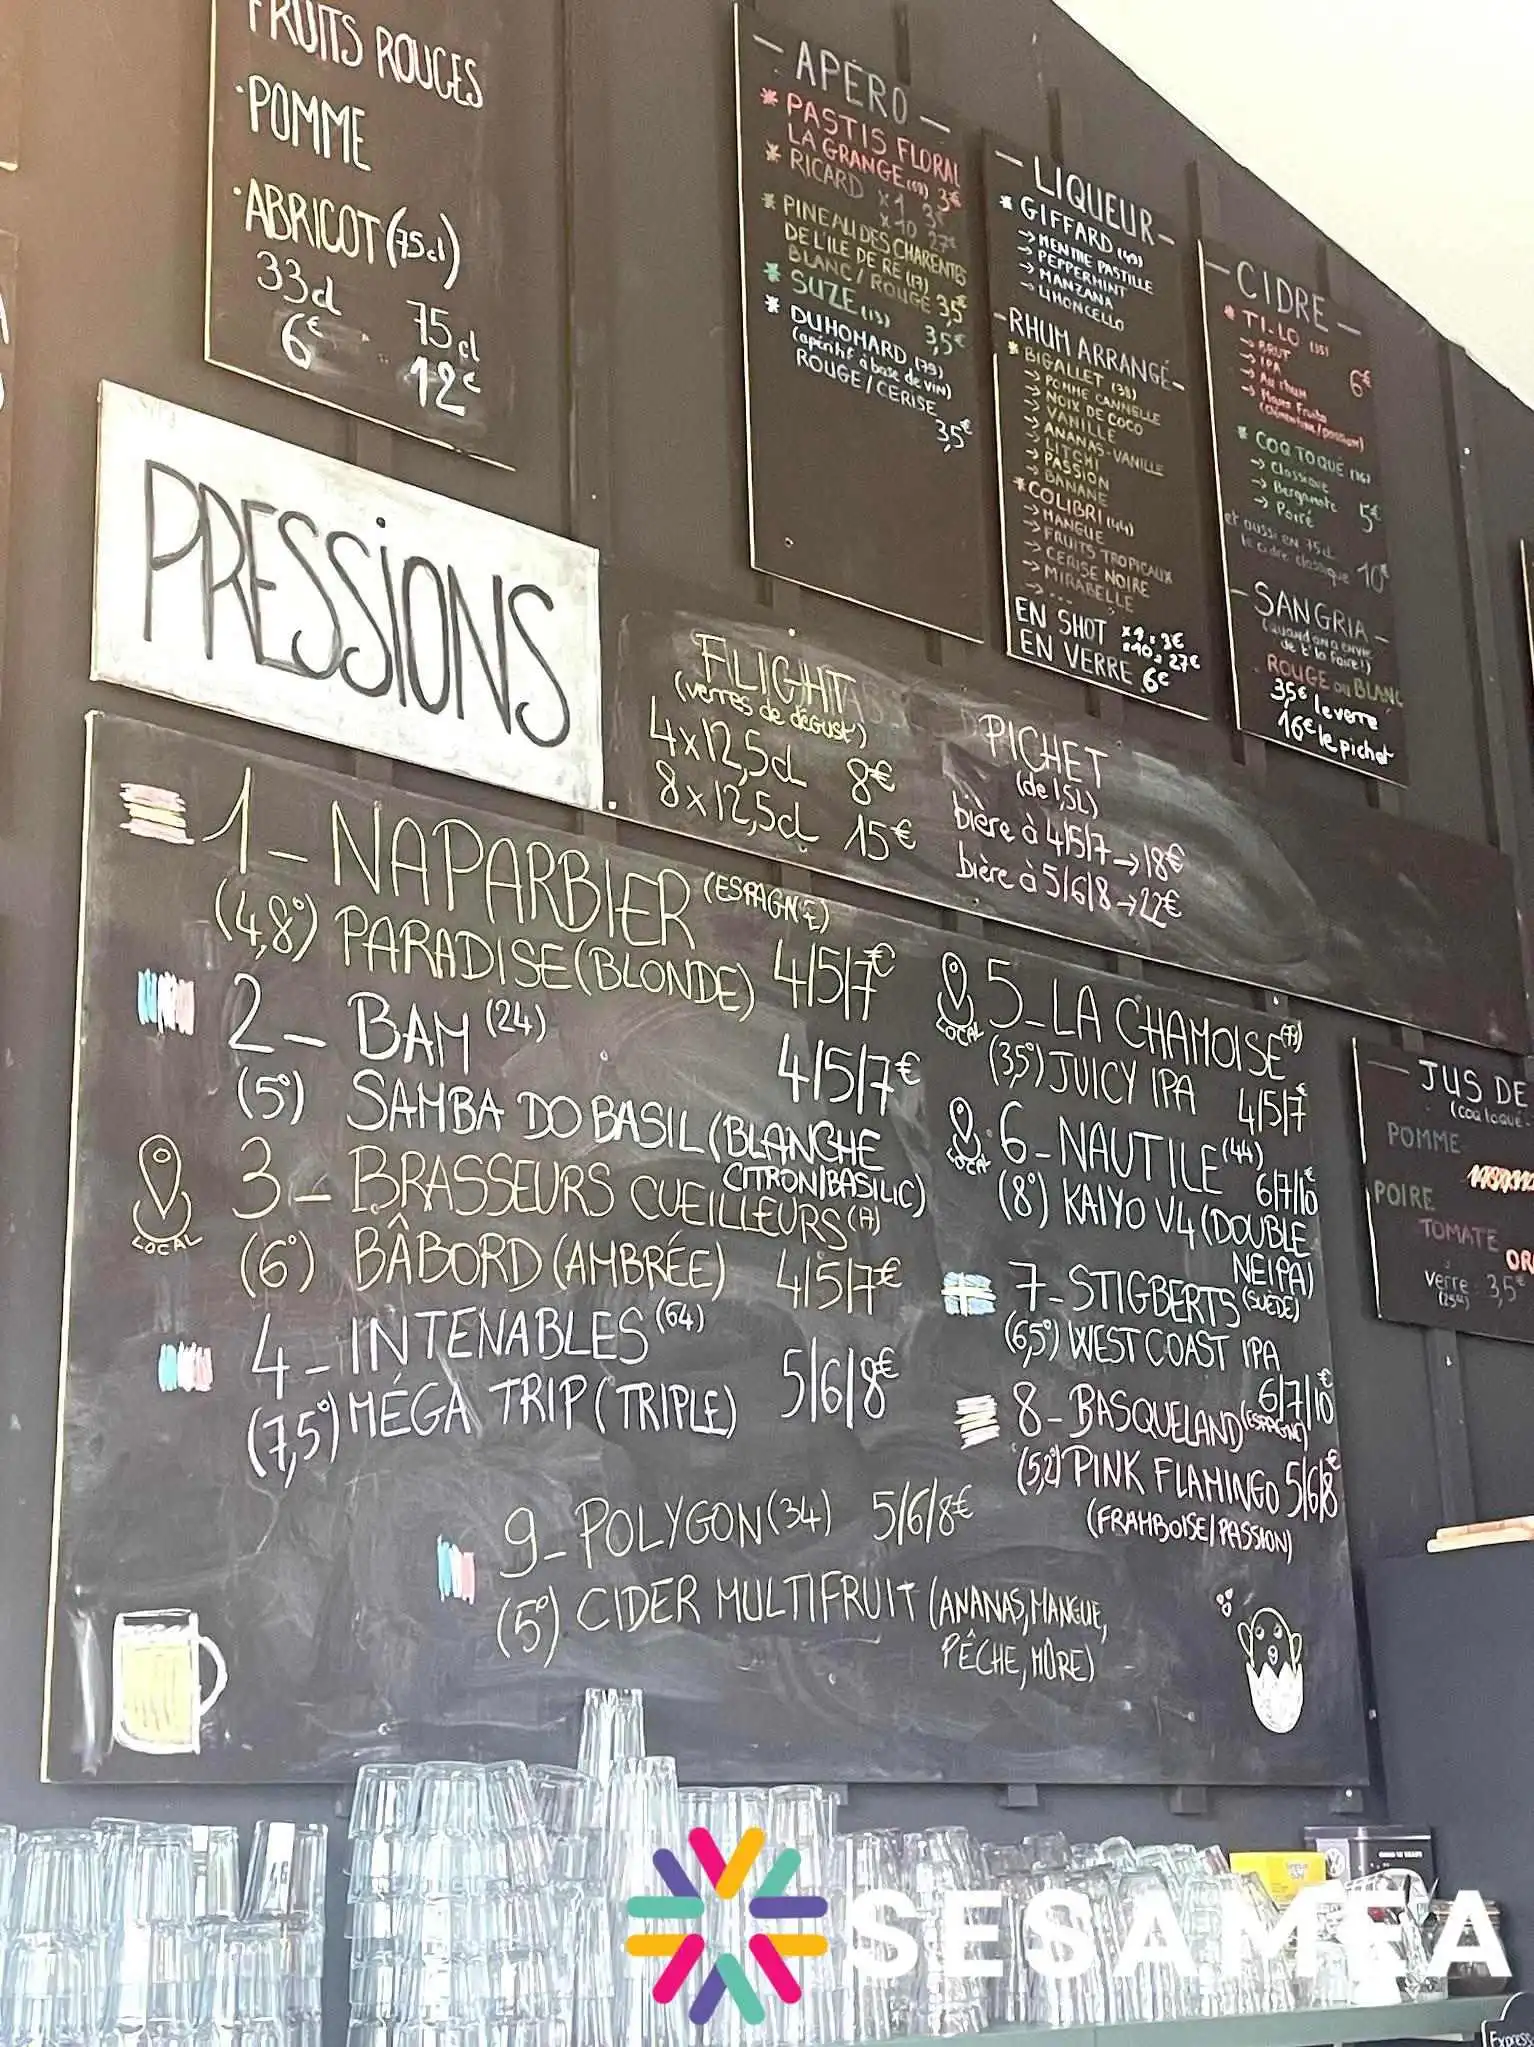 FRUITS ROUGES
·POMME
·ABRICOT (75cl)
33cl 75cl
6€ 12€
PRESSIONS
- APÉRO -
* PASTIS FLORAL
LA GRANGE 3€
* RICARD x1 3€
x10 27€
* PINEAU DES CHARENTES
DE L'ILE DE RÉ (17)
BLANC / ROUGE 3,5€
* SUZE (13) 3,5€
* DUHOMARD (79)
(apéritif à base de vin)
ROUGE / CERISE
3,5€
- LIQUEUR -
* GIFFARD (49)
→ MENTHE PASTILLE
→ PEPPERMINT
→ MANZANA
→ LIMONCELLO
- RHUM ARRANGÉ -
* BIGALLET (38)
→ POMME CANNELLE
→ NOIX DE COCO
→ VANILLE
→ ANANAS-VANILLE
→ LITCHI
→ PASSION
→ BANANE
* COLIBRI (44)
→ MANGUE
→ FRUITS TROPICAUX
→ CERISE NOIRE
→ MIRABELLE
→ ...
EN SHOT x1 : 3€
x10 : 27€
EN VERRE 6€
- CIDRE -
* TI-LO (35)
→ BRUT
→ IPA 6€
→ Au rhum
→ Mque Fruits
(clémentine/passion)
* COQ TOQUÉ (76)
→ Classique
→ Bergamote 5€
→ Poiré
et aussi en 75cl
le cidre classique 10€
- SANGRIA -
(quand on a envie
de t'la faire!)
ROUGE ou BLANC
3,5€ le verre
16€ le pichet
FLIGHT
(verres de dégust)
4x12,5cl 8€
8x12,5cl 15€
PICHET
(de 1,5L)
bière à 4/5/7 → 18€
bière à 5/6/8 → 22€
1 - NAPARBIER (ESPAGNE)
(4,8°) PARADISE (BLONDE) 4/5/7€
2 - BAM (24)
4/5/7€
(5°) SAMBA DO BASIL (BLANCHE
CITRON/BASILIC)
LOCAL
3 - BRASSEURS CUEILLEURS (17)
(6°) BÂBORD (AMBRÉE) 4/5/7€
4 - INTENABLES (64)
5/6/8€
(7,5°) MÉGA TRIP (TRIPLE)
LOCAL
5 - LA CHAMOISE (79)
(3,5°) JUICY IPA 4/5/7€
LOCAL
6 - NAUTILE (44)
6/7/10€
(8°) KAIYO V4 (DOUBLE
NEIPA)
7 - STIGBERTS (SUÈDE)
(6,5°) WEST COAST IPA
6/7/10€
8 - BASQUELAND (ESPAGNE)
(5,2°) PINK FLAMINGO 5/6/8€
(FRAMBOISE/PASSION)
9 - POLYGON (34) 5/6/8€
(5°) CIDER MULTIFRUIT (ANANAS, MANGUE,
PÊCHE, MÛRE)
- JUS DE
(coq toqué -
POMME
POIRE
TOMATE
OR
Verre : 3,5€
(25cl)
SESAMEA
Express